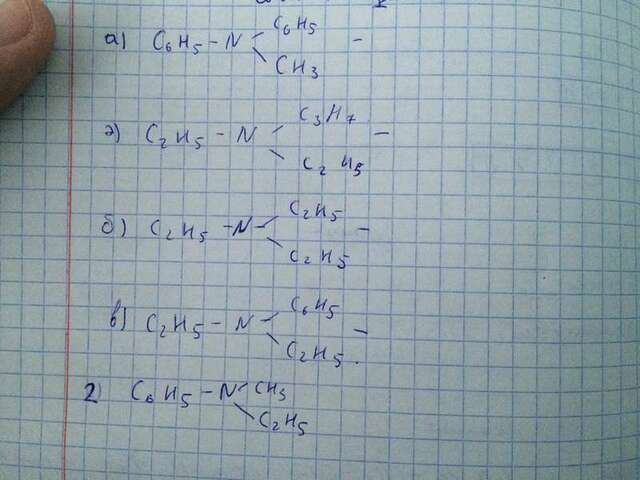 а) C6H5 - N C6H5 -
CH3
г) C2H5 - N C3H7 -
C2H5
б) C2H5 - N - C2H5 -
C2H5
в) C2H5 - N C6H5 -
C2H5.
2) C6H5 - N CH3
C2H5